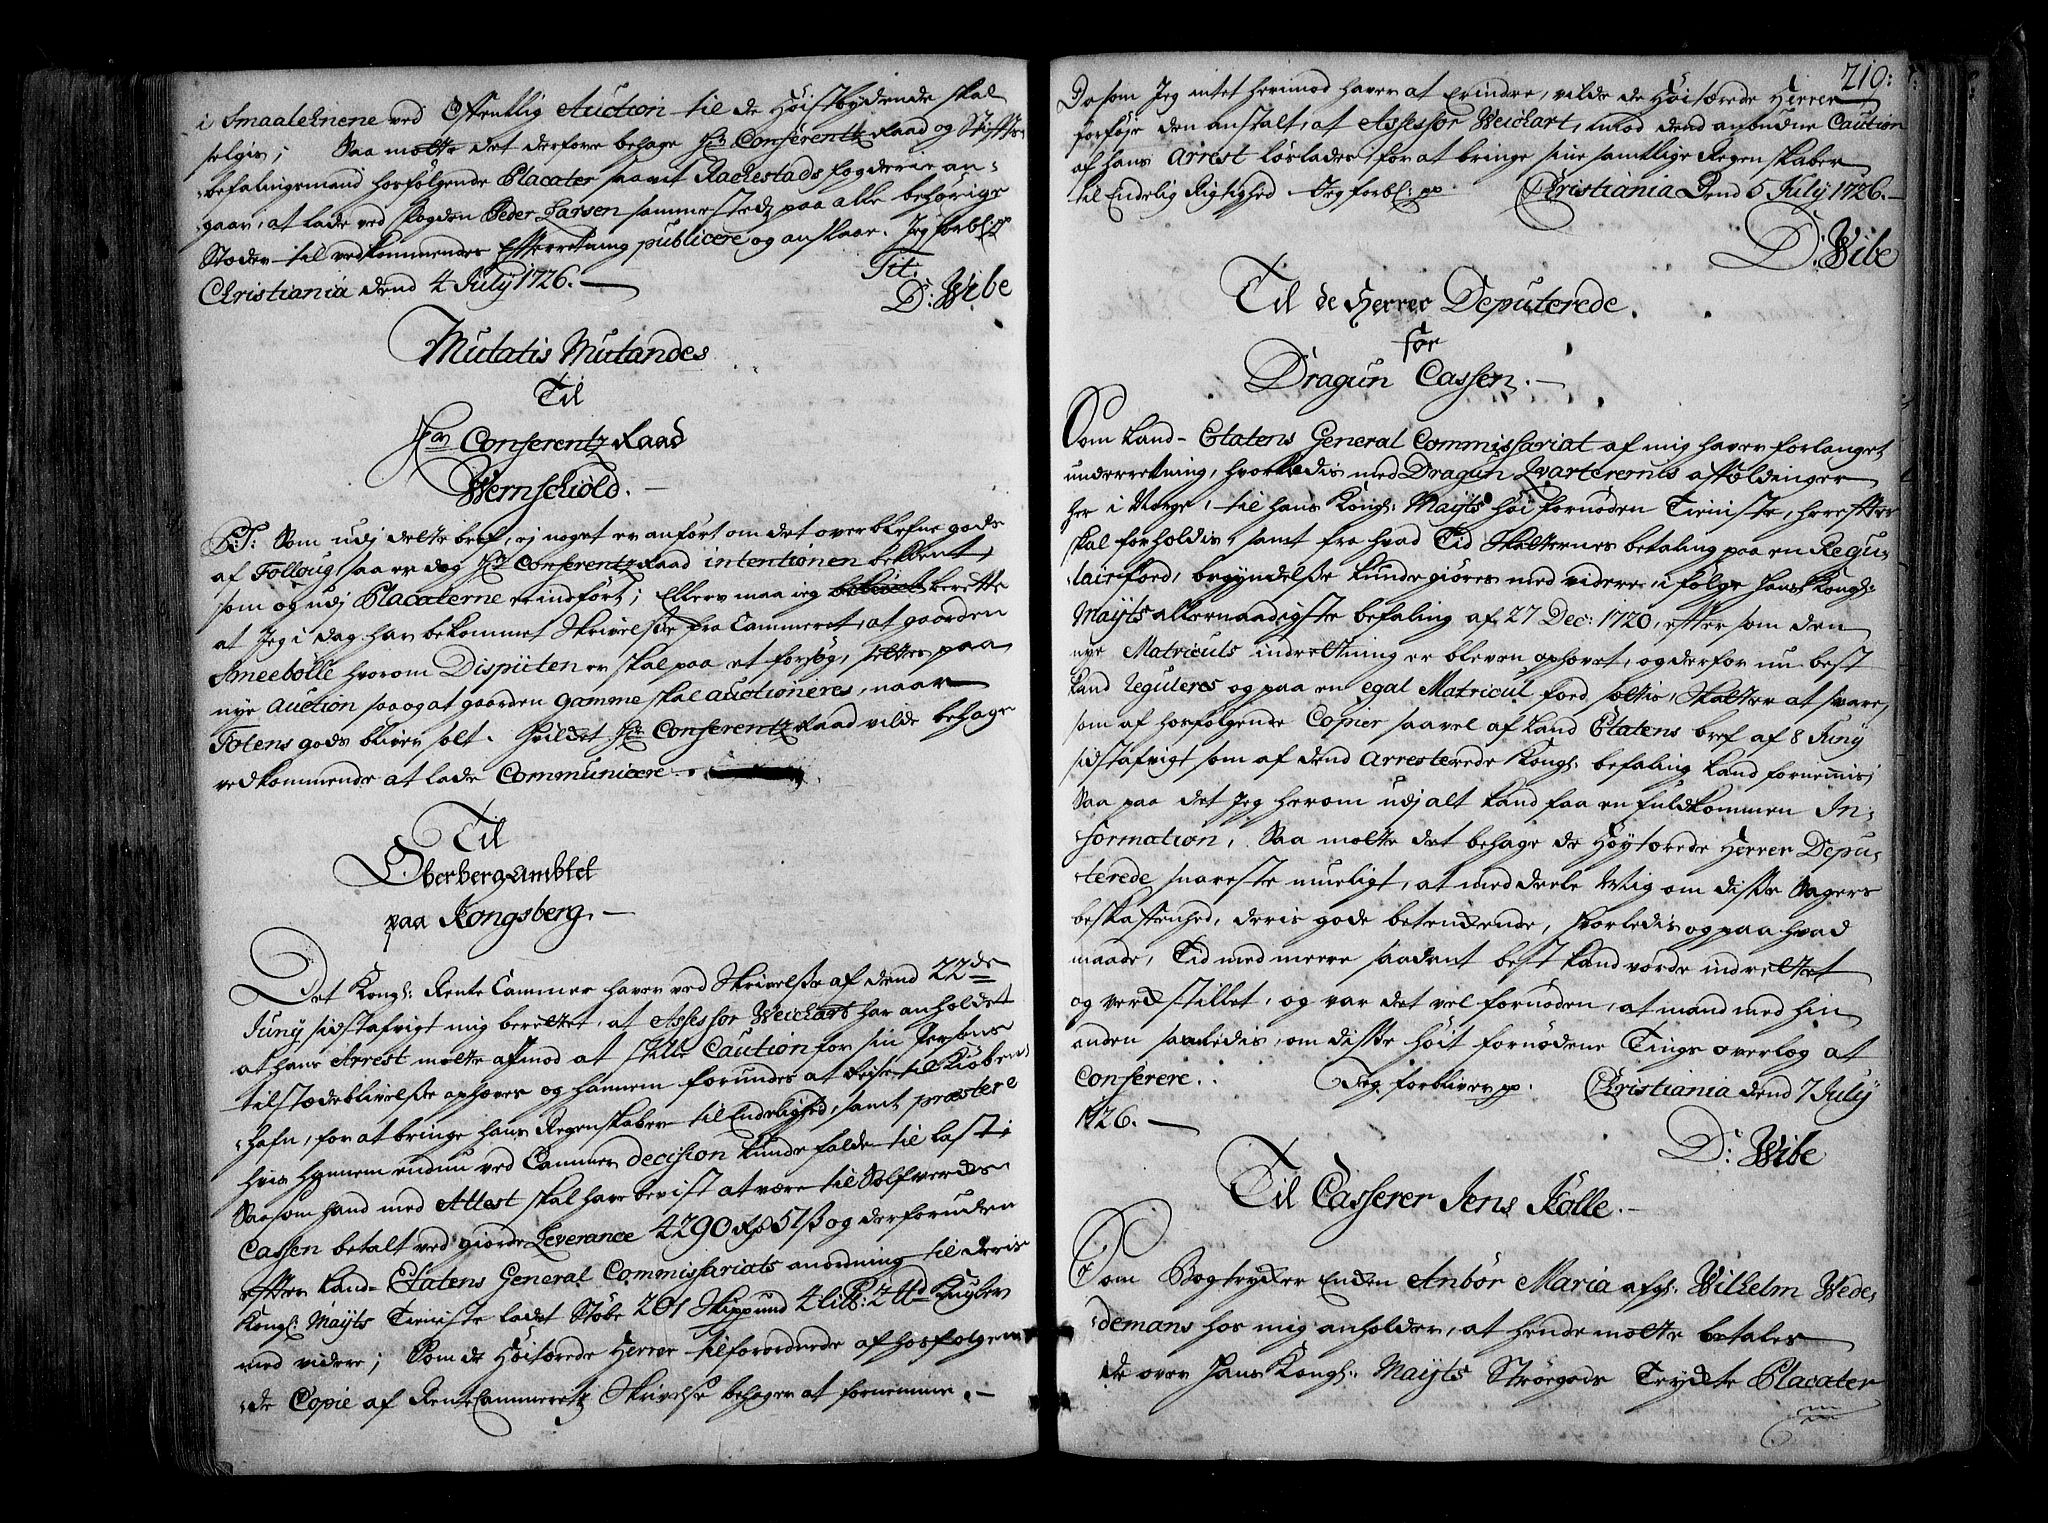 i Smaalehnene ved Offentlig Auction til de Høistbydende skal
selgis; Saa motte det derfore behage Hr: Conferentz Raad og Stifts
befalingsmand hosfølgende Placater saavit Rachestads fogderie an-
gaar, at lade ved fogden Peder Larsen sammestedz paa alle behørige
Stæder til vedkommendes Efterretning publicere og anslaae. Jeg forbl: pp
Tit:
Christiania dend 4 July 1726.
D: Wibe
Mutatis Mutandes
Til
Hr: Conferentz Raad
Wernschiold.
P:S: Som udj dette bref, ej noget er anført om det overblefne gods
af Folloug, saa er dog Hr: Conferentz Raad intentionen bekient,
som og udj Placaterne er indført; Ellers maa ieg berette
at Jeg i dag har bekommet Skrivelsse fra Cammeret, at gaarden
Smeebølle hvorom Disputen er skal paa et forsøg, settes paa
nye Auction saa og at gaarden Gamme skal auctioneres, naar
Totens gods bliver solt. Hvildet Hr: Conferentz Raad vilde behage
vedkommende at lade Communicere.
Til
Oberbergambtet
paa Kongsberg.
Det Kongl: Rente Cammer haver ved Skrivelsse af dend 22de
Juny sidstafvigt mig berettet, at Assessor Weichart har anholdet
at hans Arrest motte afmod at stille Caution for sin Persons
tilstædeblivelsse ophæves og hannem forundes at Reise til Kiøben-
hafn, for at bringe hans Regenskaber til Endelighed, samt præstere
hvis hannem endnu ved Cammer decision kunde falde til last;
Saasom hand med Attest skal have bevist at være til Sølfverds
Cassen betalt ved giorde Leverance 4290 Rd 57 ß og derforuden
efter Land-Etatens General Commissariats anordning til deris
Kongl: Mayts Tieniste ladet Støbe 201 Skippund 4 li℔: 2 ℔d Kugler
med videre; Som de Høitærede Herrer tilforordnede af hosfølgen-
de Copie af RenteCammeretz Skrivelse behager at fornemme.
210:
Da som Jeg intet herimod haver at Erindre, vilde de Høitærede Herrer
forføje den anstalt, at Assessor Weichart, imod dend anbudne Caution
af hans Arrest løslades, for at bringe sine samtlige Regenskaber
til Endelig Rigtighed. Jeg forbl: pp. Christiania Dend 5 July 1726.
D: Wibe
Til de Herrer Deputerede
for
Dragun Cassen.
Som Land-Etatens General Commissariat af mig haver forlanget
underretning, hvorledis med Dragun Qvarterernis afskildinger
her i Norge, til hans Kongl: Mayts høi fornøden Tieniste, herefter
skal forholdis, samt fra hvad Tid Skatternes betaling paa en Regu-
lair foed, begyndelsse kunde giøres med videre, i følge hans Kongl:
Mayts allernaadigste befaling af 27 Dec: 1720, eftersom den
nye Matriculs indretning er bleven ophøvet, og derfor nu best
kand reguleres og paa en egal Matricul foed settis, Skatter at svare,
som af hosfølgende Copier saavel af Land Etatens bref af 8 Juny
sidstafvigt som af dend arresterede Kongl: befaling kand fornemmis;
Saa paa det Jeg herom udj alt kand faa en fuldkommen In-
formation, Saa motte det behage de Høytærede Herrer Depu-
terede snareste mueligt, at meddeele Mig om disse Sagers
beskaffenhed, deris gode betenkende, hvorledis og paa hvad
maade, Tid med meere saadent best kand vorde indrettet
og verkstillet, og var det vel fornøden, at mand med hin
anden saaledis, om disse høit fornødene Tings overlæg at
Conferere. Jeg forbliver pp. Christiania dend 7 July
1726.
D: Wibe
Til Casserer Jens Kølle.
Som Bogtrycker Enken Anbør Maria afgl: Wilhelm Wede-
demans hos mig anholder, at hende motte betales
de over hans Kongl: Mayts Strøegods Trykte Placater